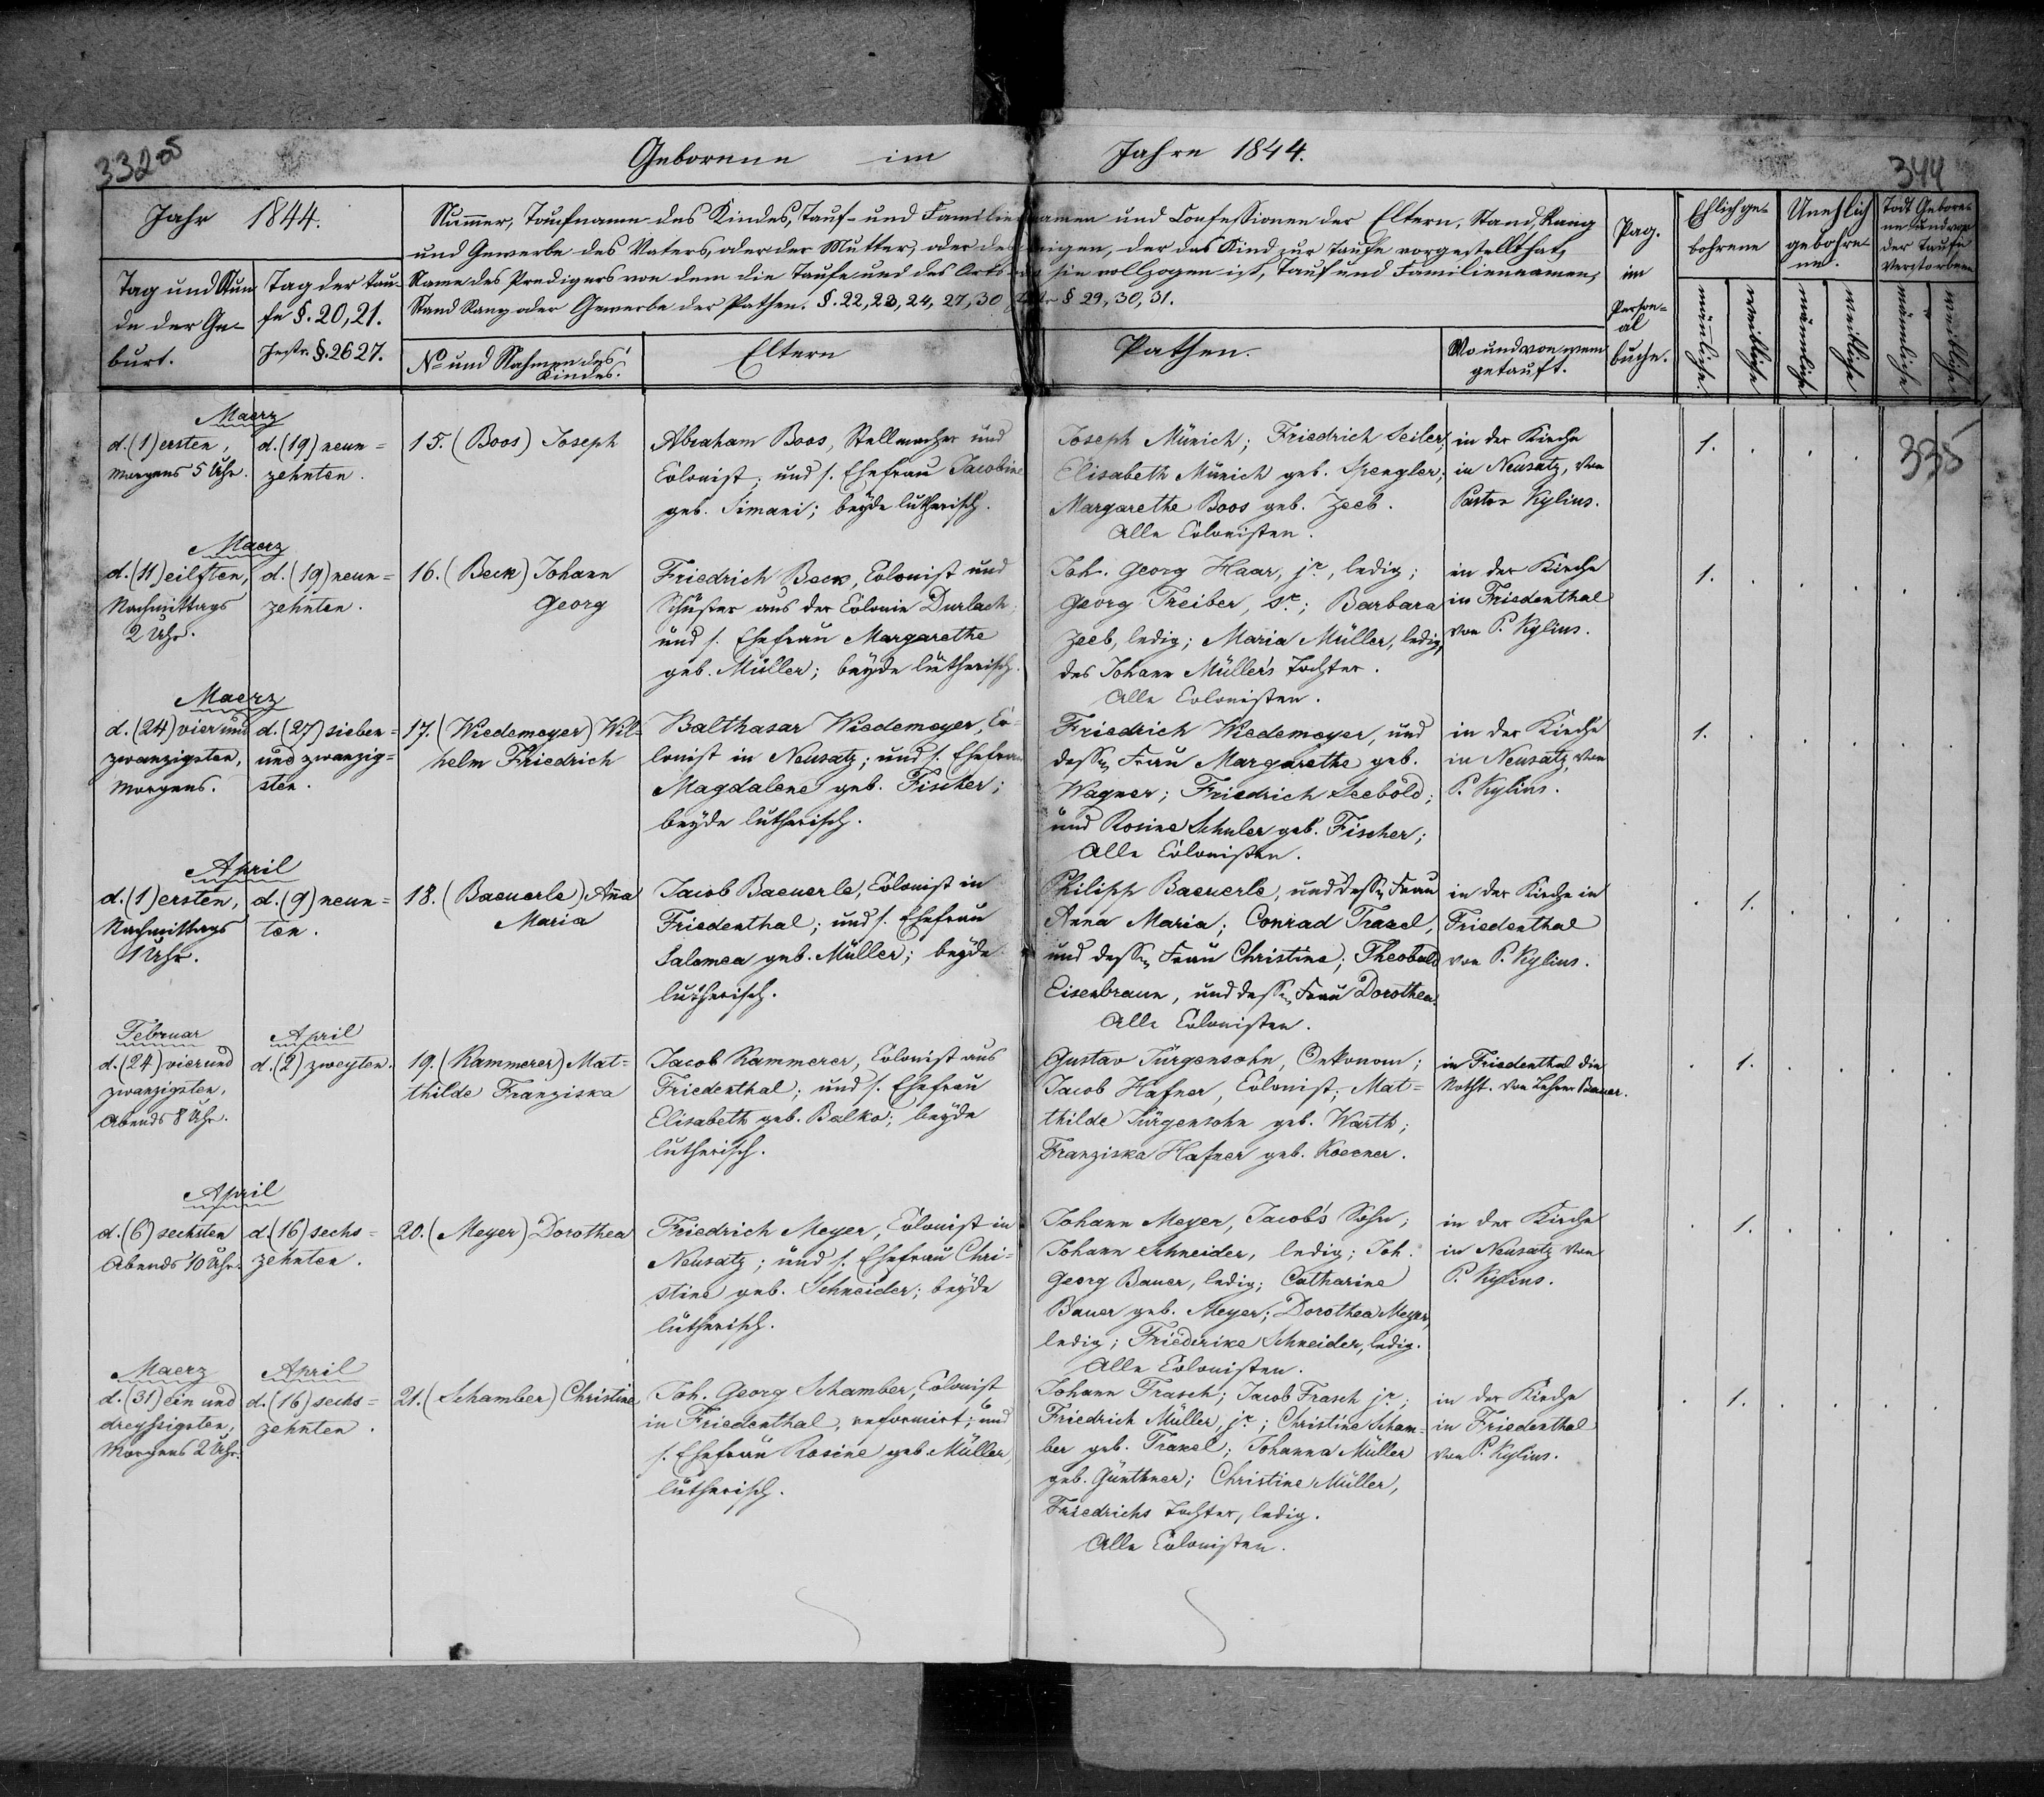 332
344
Geborene im Jahre 1844.
Jahr 1844.
Tag und Stun-
de der Ge-
burt.
Tag der Tau-
fe §. 20, 21.
Instr. §. 26 27.
Numer, Taufname des Kindes, Tauf- und Familiennamen und Confessionen der Eltern, Stand, Rang
und Gewerbe des Vaters, oder der Mutter, oder desjenigen, der das Kind zur Taufe vorgestellt hat,
Name des Predigers von dem die Taufe und des Orts wo sie vollzogen ist, Tauf und Familiennamen,
Stand Rang oder Gewerbe der Pathen. §. 22, 23, 24, 27, 30 § 29, 30, 31.
No und Nahmen des
Kindes.
Eltern
Pathen.
Wo und von wem
getauft.
Pag.
im
Person-
al
buche.
Ehlich ge-
bohrene
Unehlich
gebohre-
ne.
Todt Gebore-
ne und vor
der Taufe
Verstorbene
männliche.
weibliche
männliche
weibliche
männliche
weibliche
Maerz
d. (1) ersten,
Morgens 5 Uhr.
d. (19) neun=
zehnten.
15. (Boos) Joseph
Abraham Boos, Stellmacher und
Colonist; und s. Ehefrau Jacobine
geb. Simani; beyde lutherisch.
Joseph Münich; Friedrich Seiler;
Elisabeth Münich geb. Spengler;
Margarethe Boos geb. Zeeb.
Alle Colonisten.
in der Kirche
in Neusatz, von
Pastor Kylius.
1.
335
Maerz
d. (11) eilften,
Nachmittags
2 Uhr.
d. (19) neun=
zehnten.
16. (Beck) Johann
Georg
Friedrich Beck, Colonist und
Schuster aus der Colonie Durlach;
und s. Ehefrau Margarethe
geb. Müller; beyde lutherisch.
Joh. Georg Haar, jr., ledig;
Georg Treiber, sr.; Barbara
Zeeb, ledig; Maria Müller, ledig,
des Johann Müller's Tochter.
Alle Colonisten.
in der Kirche
in Friedenthal
von P. Kylius.
1.
Maerz
d. (24) vier und
zwanzigsten,
Morgens.
d. (27) sieben=
und zwanzig=
sten.
17. (Wiedemeyer) Wil-
helm Friedrich
Balthasar Wiedemeyer, Co-
lonist in Neusatz; und s. Ehefrau
Magdalene geb. Fischer;
beyde lutherisch.
Friedrich Wiedemeyer, und
dessen Frau Margarethe geb.
Wagner; Friedrich Seebold;
und Rosine Schuler geb. Fischer;
Alle Colonisten.
in der Kirche
in Neusatz, von
P. Kylius.
1.
April
d. (1) ersten,
Nachmittags
1 Uhr.
d. (9) neun=
ten.
18. (Baeuerle) Anna
Maria
Jacob Baeuerle, Colonist in
Friedenthal; und s. Ehefrau
Salomea geb. Müller; beyde
lutherisch.
Philipp Baeuerle, und dessen Frau
Anna Maria; Conrad Traxel,
und dessen Frau Christine; Theobald
Eisenbraun, und dessen Frau Dorothea.
Alle Colonisten.
in der Kirche in
Friedenthal
von P. Kylius.
1.
Februar
d. (24) vier und
zwanzigsten,
Abends 8 Uhr.
April
d. (2) zweyten.
19. (Kammerer) Mat=
thilde Franziska
Jacob Kammerer, Colonist aus
Friedenthal; und s. Ehefrau
Elisabeth geb. Balko; beyde
lutherisch.
Gustav Jürgensohn, Oekonom;
Jacob Hafner, Colonist; Mat=
thilde Jürgensohn geb. Warth;
Franziska Hafner geb.
in Friedenthal die
Notht. von Lehrer Bauer.
1.
April
d. (6) sechsten
Abends 10 Uhr.
d. (16) sechs=
zehnten.
20. (Meyer) Dorothea
Friedrich Meyer, Colonist in
Neusatz; und s. Ehefrau Chri=
stine geb. Schneider; beyde
lutherisch.
Johann Meyer, Jacob's Sohn;
Johann Schneider, ledig; Joh.
Georg Bauer, ledig; Catharine
Bauer geb. Meyer; Dorothea Meyer,
ledig; Friederike Schneider, ledig.
Alle Colonisten.
in der Kirche
in Neusatz von
P. Kylius.
1.
Maerz
d. (31) ein und
dreyssigsten,
Morgens 2 Uhr.
April
d. (16) sechs=
zehnten.
21. (Schamber) Christine
Joh. Georg Schamber, Colonist
in Friedenthal, reformirt; und
s. Ehefrau Rosine geb. Müller,
lutherisch.
Johann Frasch; Jacob Frasch jr.;
Friedrich Müller, jr.; Christine Scham-
ber geb. Traxel; Johanna Müller
geb. Günthner; Christine Müller,
Friedrichs Tochter, ledig.
Alle Colonisten.
in der Kirche
in Friedenthal
von P. Kylius.
1.